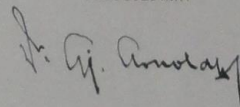 Dr. Gj. Arnold